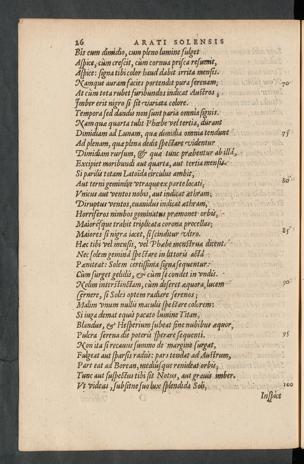 26 ARATI SOLENSIS
Bis eum dimidio, cum pleno lumine fulget
Aspice, cùm crescit, cùm cornua prisca resumit,
Aspice: signa tibi color haud dabit irrita mensis.
Namque auram facies portendit pura serenam;
70
At cùm tota rubet furibundos indicat Austros;
Imber erit nigro si sit variata colore.
Tempora sed dando non sunt paria omnia signis.
Nam quæ quarta tulit Phœbe vel tertia, durant
Dimidiam ad Lunam, quæ dimidia omnia tendunt
75
Ad plenam, quæ plena dedit spectare videntur
Dimidiam rursum, & quæ tunc præbentur ab illâ,
Excipiet moribundi aut quarta, aut tertia mensis.
Si parilis totam Latoida circulus ambit,
Aut terni geminive utraque ex parte locati,
80
Vnicus aut ventos nobis, aut indicat æthram;
Diruptus ventos, euanidus indicat æthram,
Horriferos nimbos geminatus præmonet orbis,
Maioresque trahit triplicata corona procellas;
Maiores si nigra iacet, si scinditur
85
Hæc tibi vel mensis, vel Phœbe menstrua dicent.
Nec solem gemina spectare in littoris
Pœniteat: Solem certissima signa sequuntur.
Cùm surget gelidis, & cùm se condet in vndis.
Nolim interstinctam, cùm deseret æquora, lucem
90
Cernere, si Soles optem radiare serenos;
Malim vnum nullis maculis spectare colorem:
Si iuga demat equis pacato lumine Titan,
Blandus, & Hesperium subeat sine nubibus æquor,
Pulcra serena die poteris sperare sequenti.
95
Non ita si vacuus summo de margine surgat,
Fulgeat aut sparsis radiis: pars tendat ad Austrum,
Pars eat ad Borean, mediusque renideat orbis,
Tunc aut suspectus tibi sit Notus, aut grauis imber.
Vt videas, subsitne suo lux splendida Soli,
100
Inspice